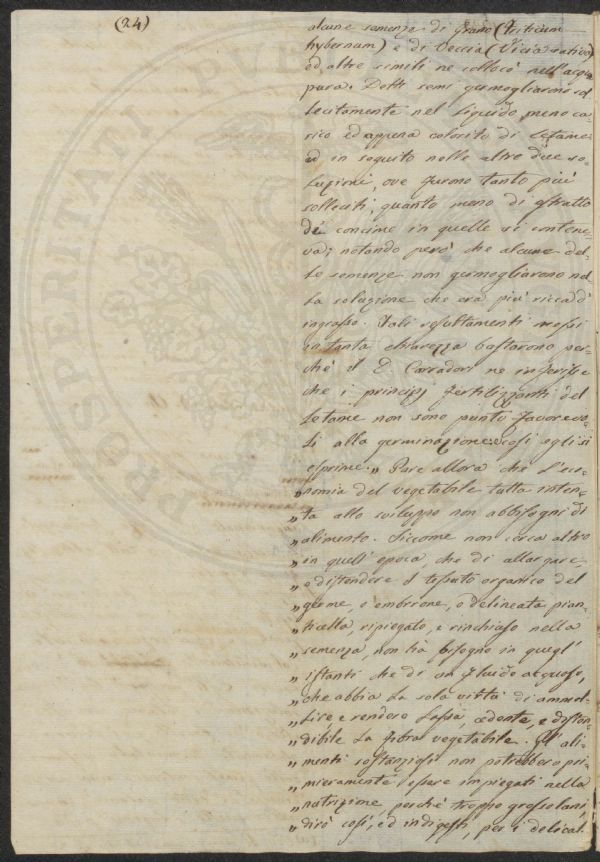 (24)
alcune semenze di Grano (Triticum
hybernum) e di Veccia (Vicia sativa)
ed altre simili ne collocò nell'acqua
pura. Detti semi germogliarono sol-
lecitamente nel liquido meno ca-
rico ed appena colorito di letame
ed in seguito nelle altre due so-
luzioni, ove furono tanto più
solleciti, quanto meno di estratto
di concime in quelle si contene-
va; notando però che alcune del-
le semenze non germogliarono nel-
la soluzione che era più ricca d'
ingrasso. Tali resultamenti messi
in tanta chiarezza bastarono per-
chè il D. Carradori ne inferisse
che i principj fertilizzanti del
letame non sono punto favorevo-
li alla germinazione: così egli si
esprime. „ Pare allora che l'eco-
„nomia del vegetabile tutta inten-
„ta allo sviluppo non abbisogni di
„alimento. Siccome non cerca altro
„in quell'epoca, che di allargare
„e distendere il tessuto organico del
„germe, o embrione, o delineata pian-
„ticella, ripiegato, e rinchiuso nella
„semenza, non hà bisogno in quegl'
„istanti che di un fluido acquoso,
„che abbia la sola virtù di ammol-
„lire, e rendere lassa, cedente, e disten-
„dibile la fibra vegetabile. Gl'ali-
„menti sostanziosi non potrebbero pri-
„mieramente essere impiegati nella
„nutrizione, perchè troppo grossolani,
„dirò così, ed indigesti, per i delicat-
PROSPERITATI PUBL